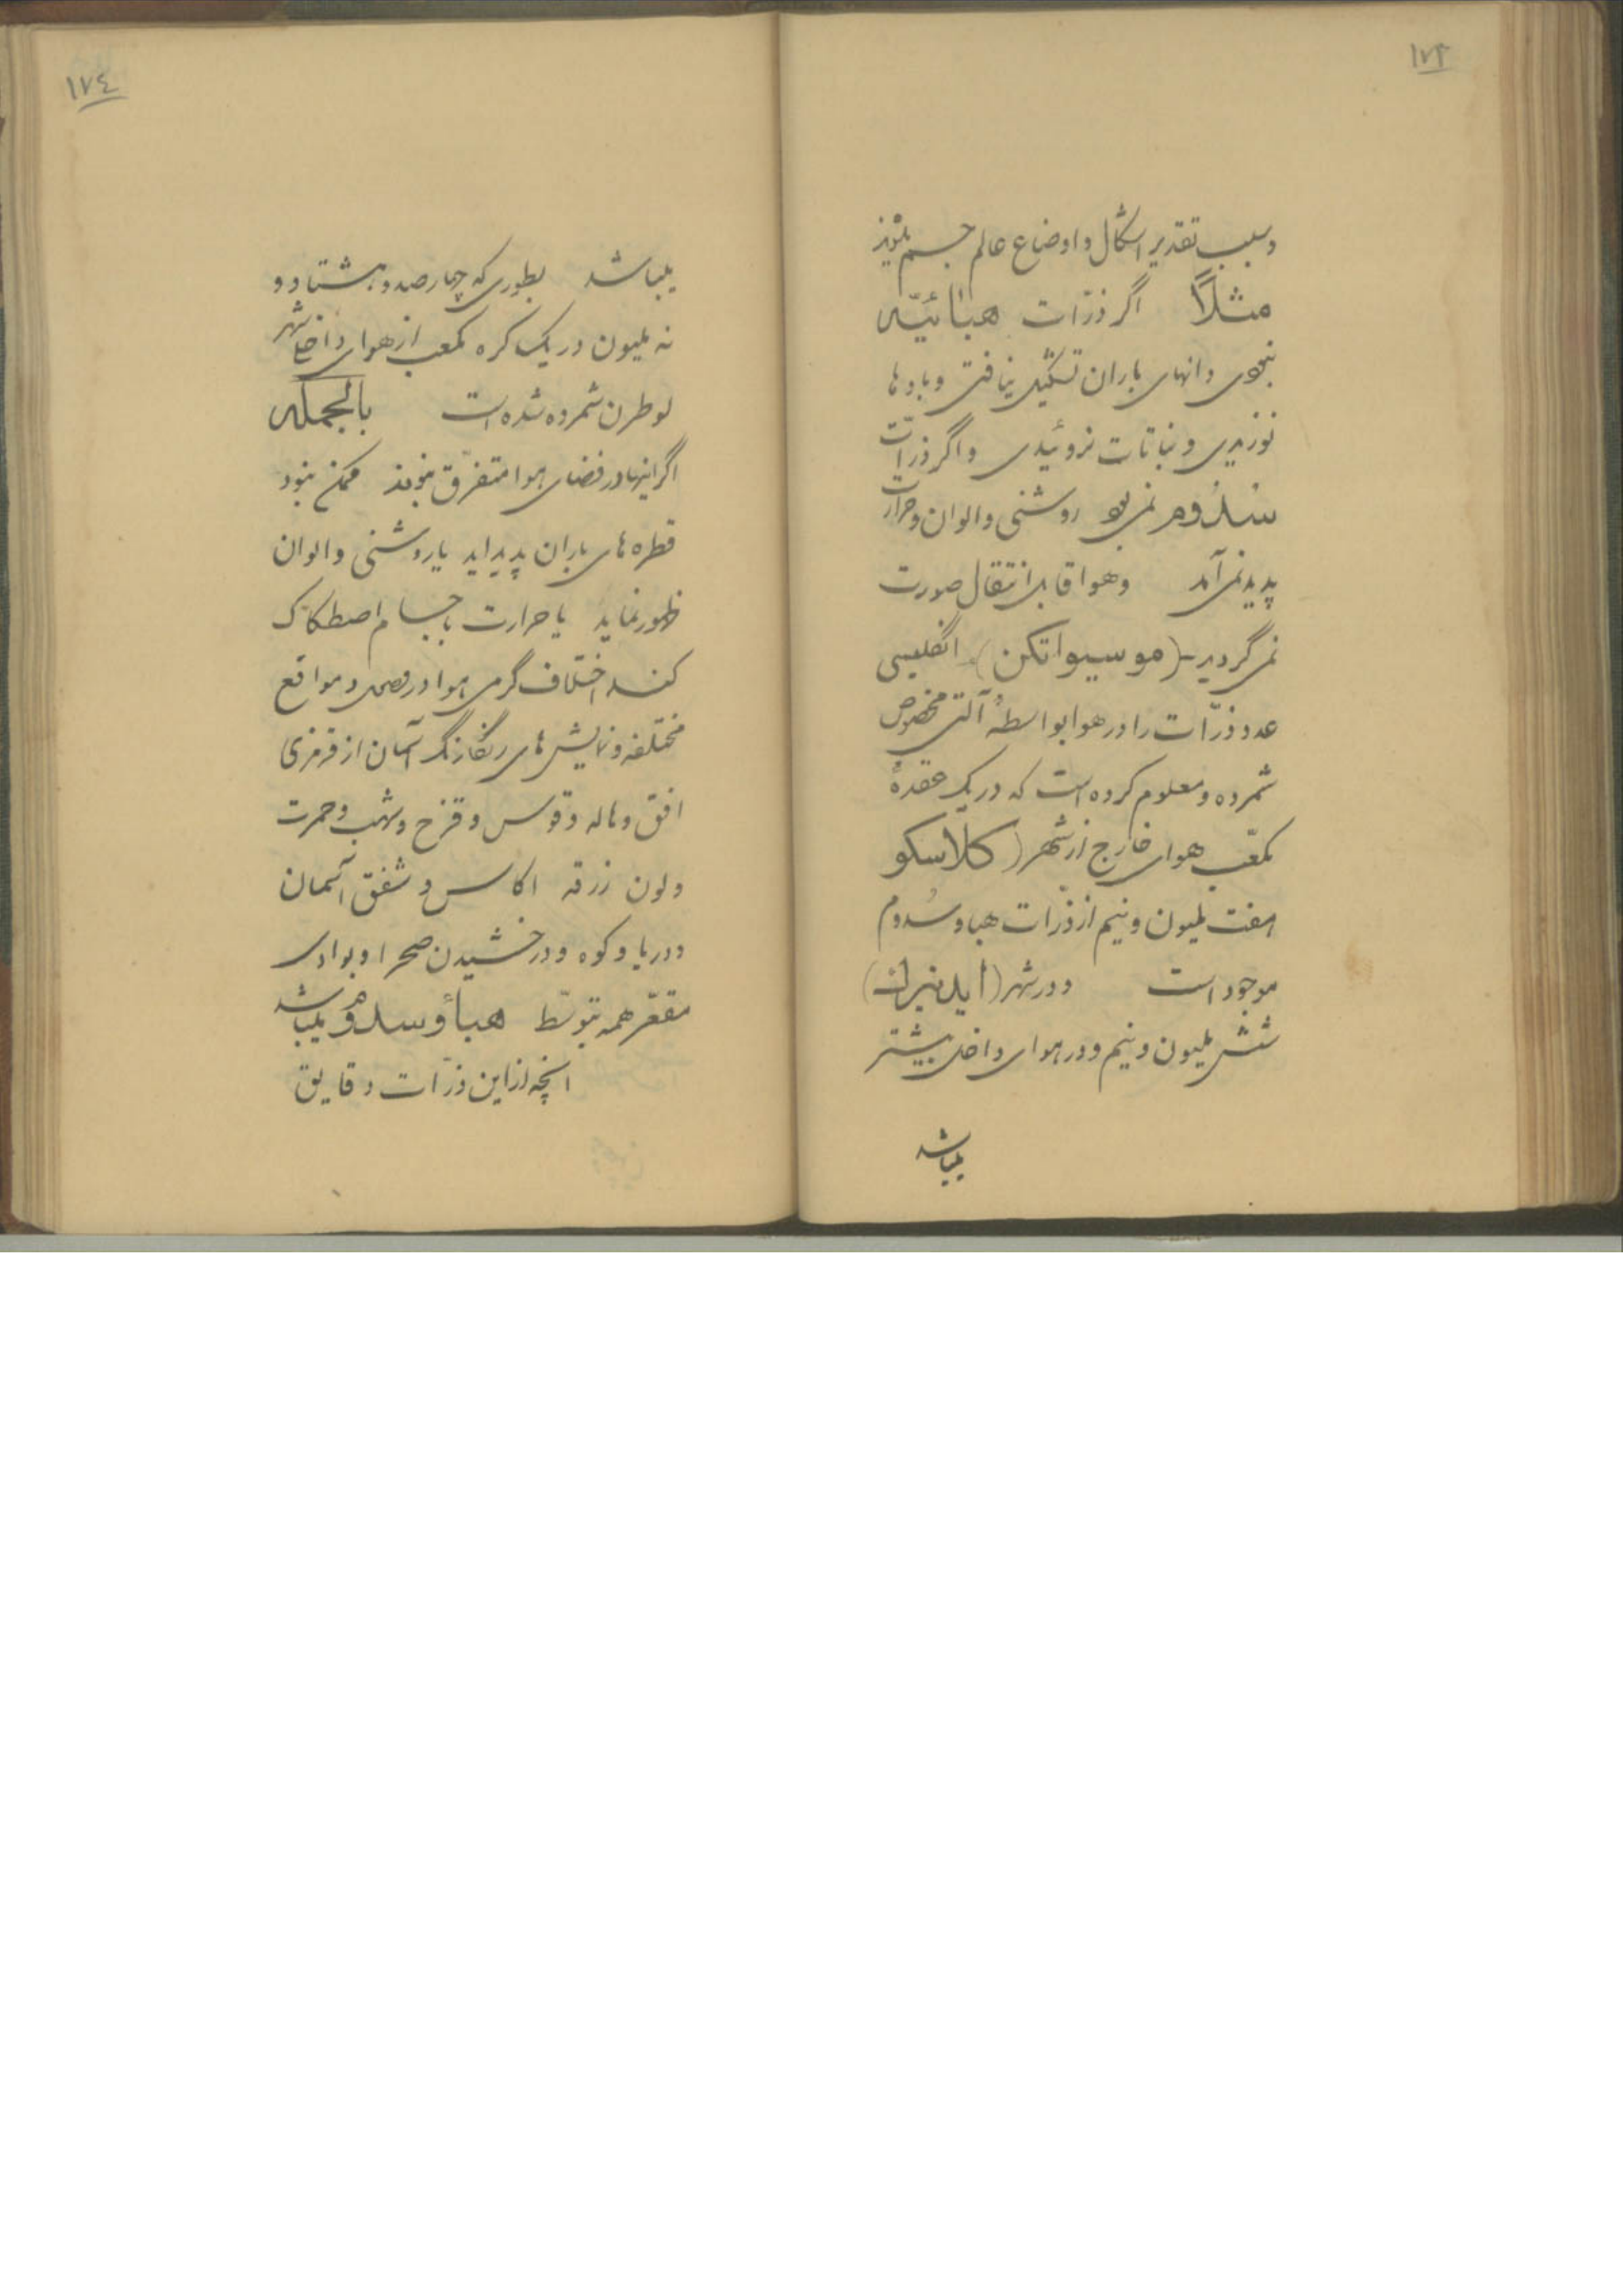 ۱۷۳
وسبب تقدیر اشکال و اوضاع عالم جسم
مثلاً اگر ذرّات هبائیّه
نبودی دانهای باران تشکیل نیافتی و بادها
نوزیدی و نباتات نروئیدی و اگر ذرّات
سدوم نمی‌بود روشنی و الوان و حرارت
پدید نمی‌آمد و هوا قابل انتقال صورت
نمی‌گردید - (موسیو اتکن) انگلیسی
عدد ذرّات را در هوا بواسطهٔ آلتی مخصوص
شمرده و معلوم کرده است که در یک عقدهٔ
مکعّب هوای خارج از شهر (کلاسکو
هفت ملیون و نیم از ذرات هبا و سدوم
موجود است و در شهر (ایدنبران)
شش ملیون و نیم و در هوای داخل بیشتر
میباشد
۱۷٤
میباشد بطوری که چهار صد و هشتاد و
نه ملیون در یک کره مکعب از هوای داخل شهر
لوطرن شمرده شده است بالجمله
اگر اینها در فضای هوا متفرّق نبودند ممکن نبود
قطره های باران پدید اید یا روشنی و الوان
ظهور نماید یا حرارت با جسام اصطکاک
کند اختلاف گرمی هوا در فصل و مواقع
مختلفه و نمایش های رنگارنگ آسمان از قرمزی
افق و هاله و قوس و قزح و شهب و حمرت
ولون زرقه اکاس و شفق آسمان
و دریا و کوه و درخشیدن صحرا و بوادی
مقعّر همه بتوسّط هبأ و سدوم میباشد
انچه از این ذرّات دقایق